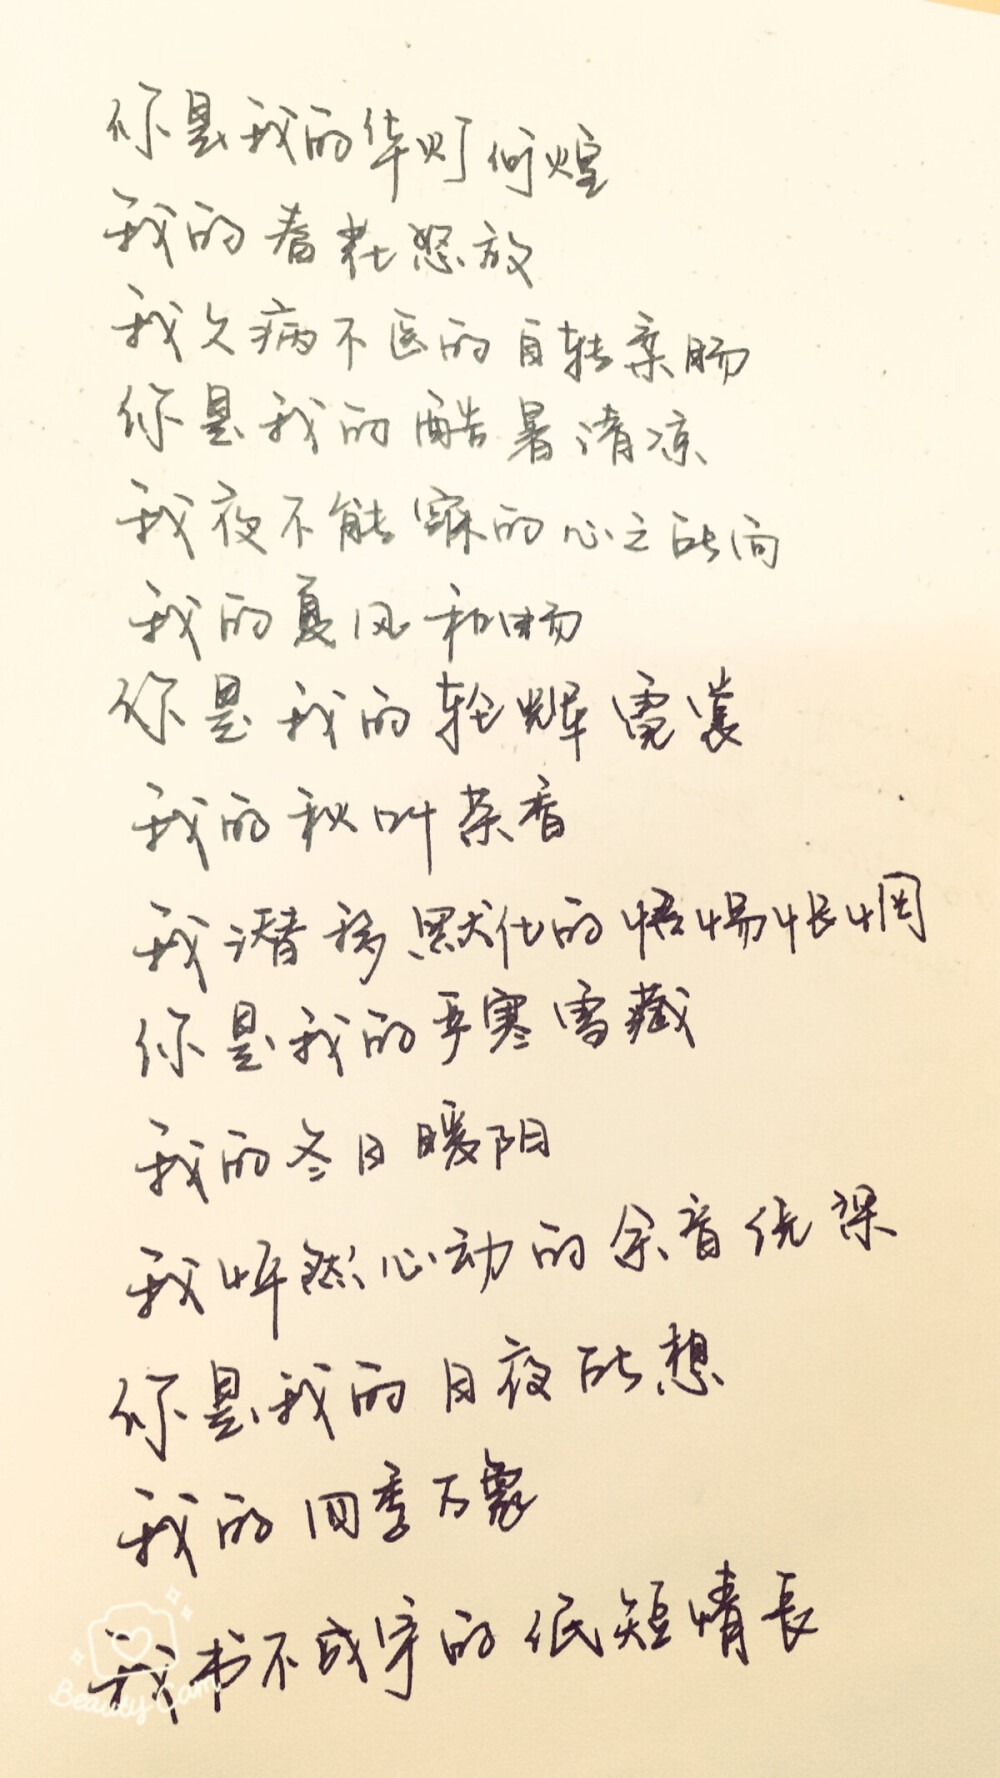 你是我的华灯何煌
我的春花怒放
我久病不医的自转柔肠
你是我的酷暑清凉
我夜不能寐的心之所向
我的夏风和畅
你是我的轻辉霓裳
我的秋叶茶香
我潜移默化的悟惕怅惘
你是我的严寒雪藏
我的冬日暖阳
我怦然心动的余音绕梁
你是我的日夜所想
我的四季万象
我书不成字的低短情長
BeautyCam